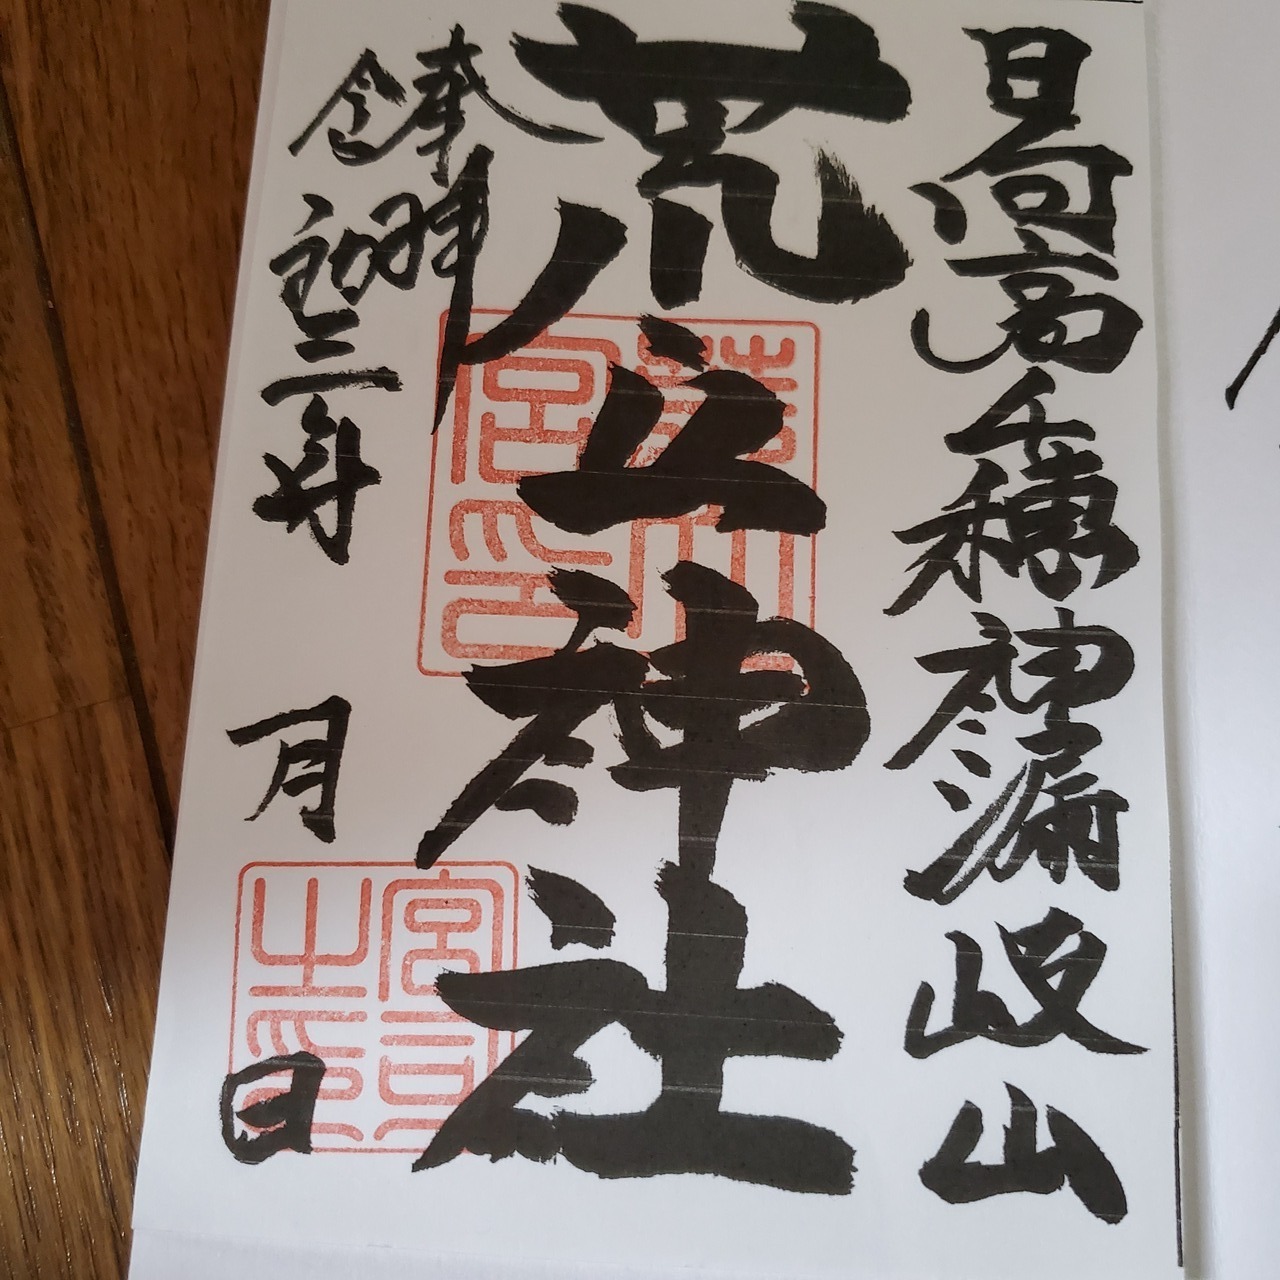 日向高千穂神漏岐山
荒立神社
奉拝
令和三年 月 日
荒立宮印
宮司之印